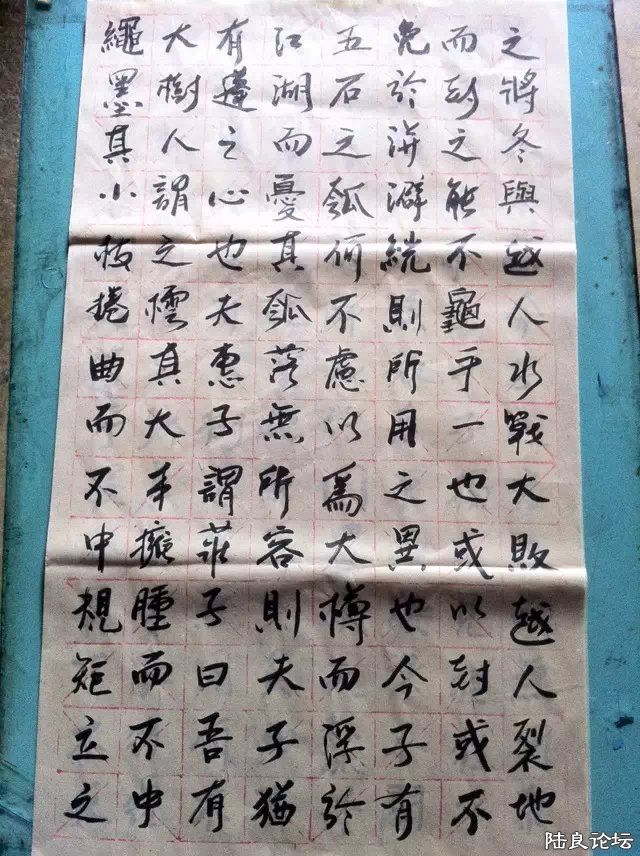 之將冬與越人水戰大敗越人裂地
而封之能不龜手一也或以封或不
免於洴澼絖則所用之異也今子有
五石之瓠何不慮以爲大樽而浮於
江湖而憂其瓠落無所容則夫子猶
有蓬之心也夫惠子謂莊子曰吾有
大樹人謂之樗其大本擁腫而不中
繩墨其小枝捲曲而不中規矩立之
陆良论坛